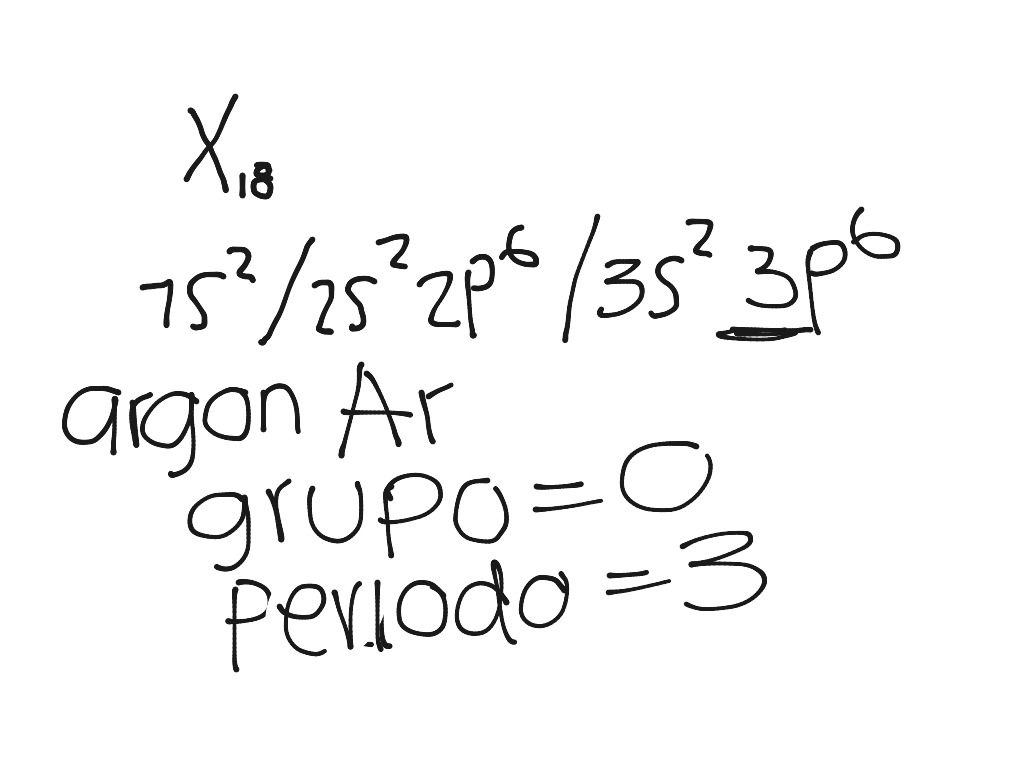 X₁₈
1s²/2s²2p⁶/3s²3p⁶
argon Ar
grupo=0
periodo=3